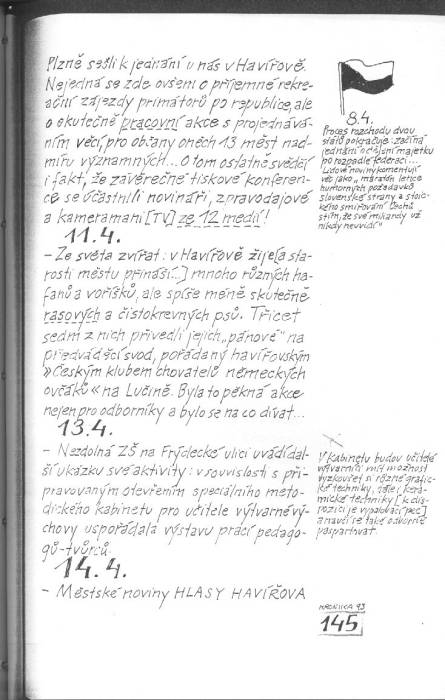 Plzně sešli k jednání u nás v Havířově.
Nejedná se zde ovšem o příjemné rekre-
ační zájezdy primátorů po republice, ale
o skutečně pracovní akce s projednává-
ním věcí, pro občany oněch 13 měst nad-
míru významných... O tom ostatně svědčí
i fakt, že závěrečné tiskové konferen-
ce se účastnili novináři, zpravodajové
a kameramani [TV] ze 12 medií!
11.4.
- Ze světa zvířat: v Havířově žije [a sta-
rosti městu přináší...] mnoho různých ha-
fanů a voříšků, ale spíše méně skutečně
rasových a čistokrevných psů. Třicet
sedm z nich přivedli jejich „pánové" na
předváděcí svod, pořádaný havířovským
»Českým klubem chovatelů německých
ovčáků« na Lučině. Byla to pěkná akce
nejen pro odborníky a bylo se na co dívat...
13.4.
- Nezdolná ZŠ na Frýdecké ulici uvádí dal-
ší ukázku své aktivity: v souvislosti s při-
pravovaným otevřením speciálního meto-
dického kabinetu pro učitele výtvarné vý-
chovy uspořádala výstavu prací pedago-
gů-tvůrců.
14.4.
- Městské noviny HLASY HAVÍŘOVA
8.4.
Proces rozchodu dvou
států pokračuje: začíná
jednání o dělení majetku
po rozpadlé federaci...
Lidové noviny komentují
věc jako „maratón letice
humorných požadavků
slovenské strany a stoic-
kého smiřování Čechů
s tím, že své miliardy už
nikdy neuvidí"
V kabinetu budou učitelé
výtvarníci mít možnost
vyzkoušet si různé grafic-
ké techniky, dále i kera-
mické techniky [k dis-
pozici je vypalovací pec]
a naučí se také odborně
paspartovat.
KRONIKA 93
145